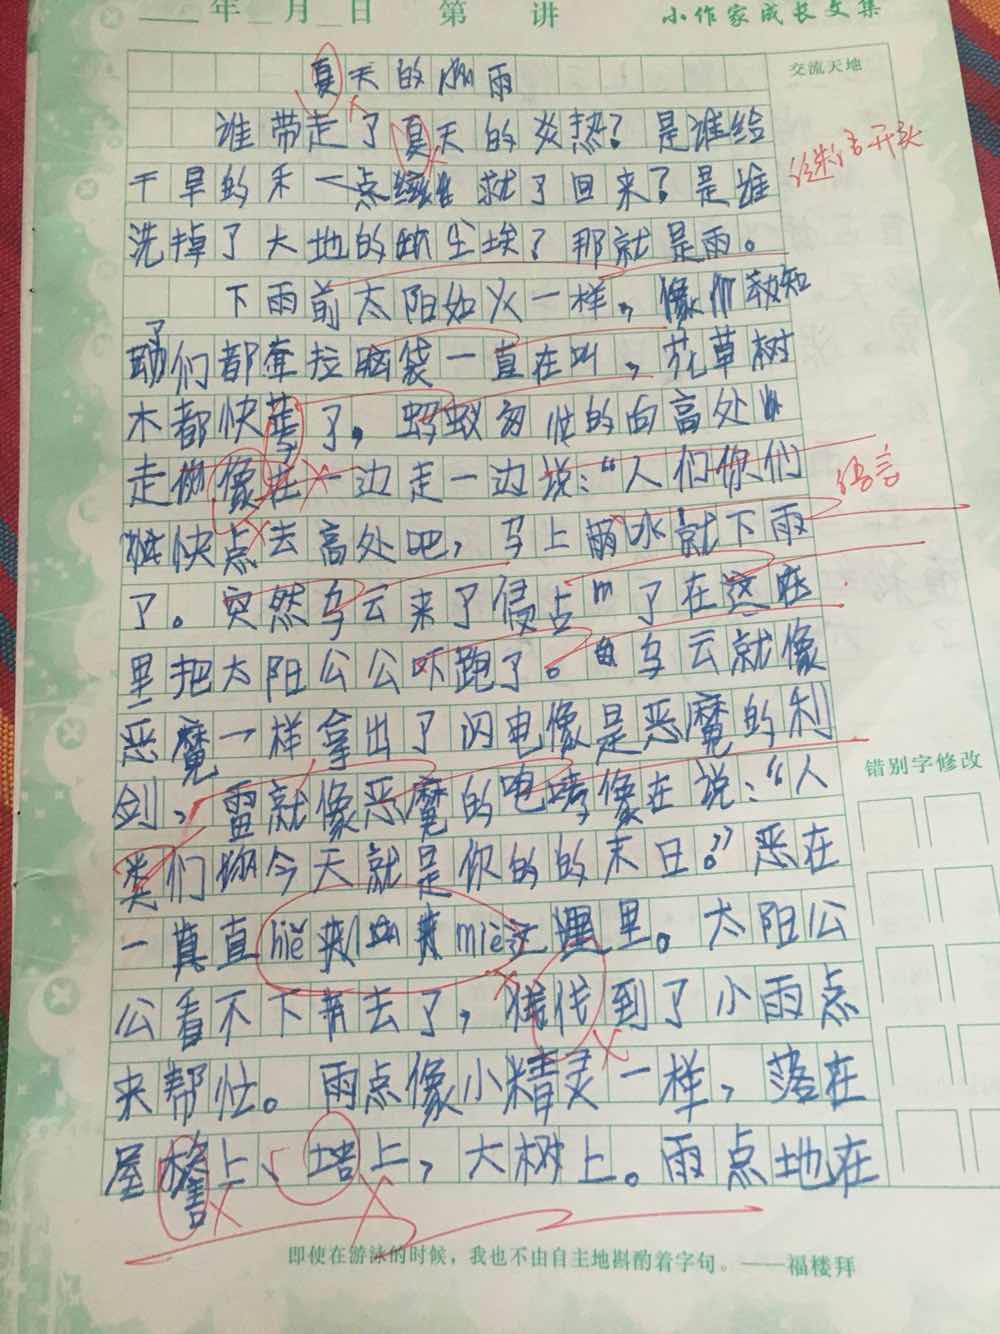 年 月 日 第 讲 小作家成长文集
夏天的雨
交流天地
谁带走了夏天的炎热？是谁给
谜语开头
干旱的禾一点 就了回来？是谁
洗掉了大地的 尘埃？那就是雨。
下雨前太阳如火一样，像 知
了们都牵拉脑袋一直在叫，花草树
木都快 了，蚂蚁匆忙的向高处
走 像在一边走一边说：“人们你们
快点去高处吧，马上 水就下雨
语言
了。突然乌云来了侵占m了在这
里把太阳公公吓跑了。乌云就像
恶魔一样拿出了闪电像是恶魔的利
错别字修改
剑、雷就像恶魔的咆哮像在说：“人
类们 今天就是你的的末日。”恶在
一真直 miè这 里。太阳公
公看不下 去了， 找到了小雨点
来帮忙。雨点像小精灵一样，落在
屋 上、 上，大树上。雨点地在
即使在游泳的时候，我也不由自主地斟酌着字句。——福楼拜